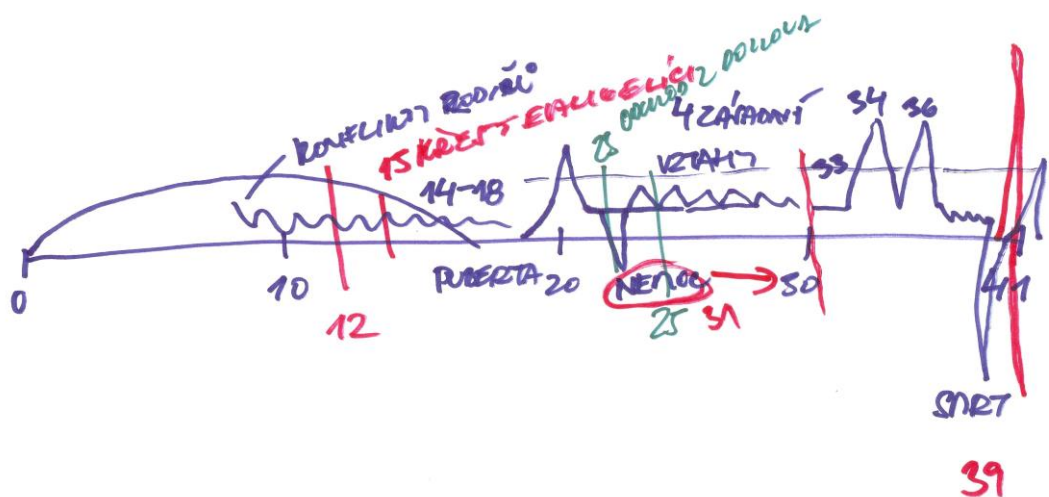 KONFLIKTY RODIČŮ
15 KŘEST EVANGELÍCI
25 ODCHOD Z DOMOVA
4 ZÁSADNÍ
VZTAHY
14-18
33
34
36
0
10
12
PUBERTA
20
NEMOC
25
31
30
41
SMRT
39